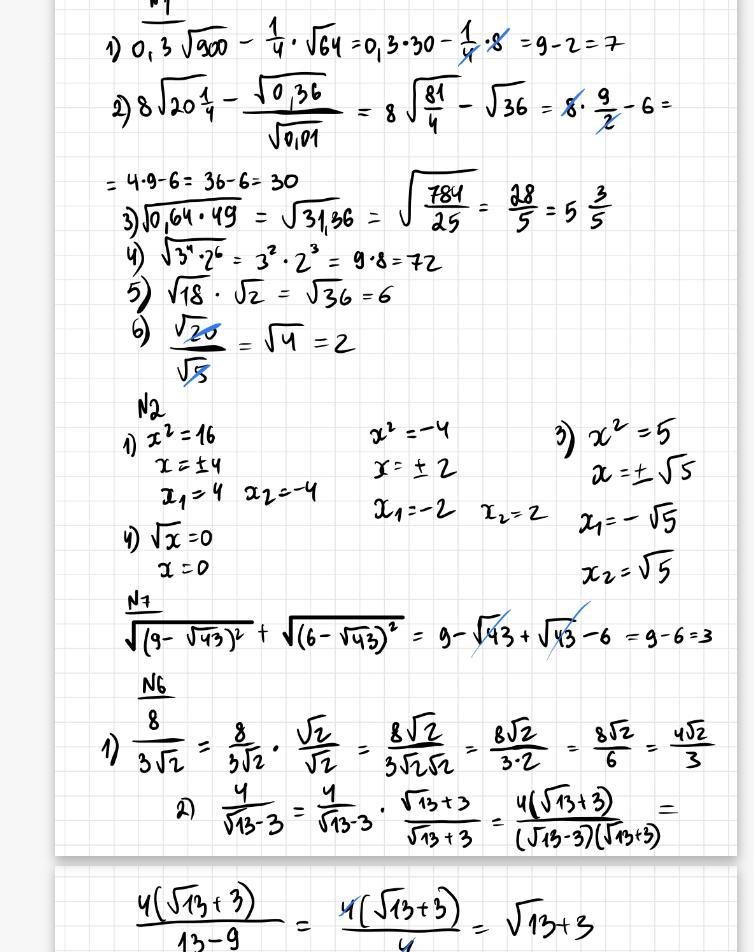 N1
1) 0,3√900 − 1/4 · √64 = 0,3·30 − 1/4 · 8 = 9 − 2 = 7
2) 8√(20 1/4) − √0,36/√0,01 = 8√(81/4) − √36 = 8 · 9/2 − 6 =
= 4·9−6 = 36−6 = 30
3) √(0,64·49) = √31,36 = √(784/25) = 28/5 = 5 3/5
4) √(3⁴·2⁶) = 3²·2³ = 9·8 = 72
5) √18 · √2 = √36 = 6
6) √20/√5 = √4 = 2
N2
1) x² = 16
x = ±4
x₁ = 4 x₂ = −4
x² = −4
x = ±2
x₁ = −2 x₂ = 2
3) x² = 5
x = ±√5
x₁ = −√5
x₂ = √5
4) √x = 0
x = 0
N7
√((9−√43)²) + √((6−√43)²) = 9−√43 + √43 − 6 = 9−6 = 3
N6
1) 8/(3√2) = 8/(3√2) · √2/√2 = 8√2/(3√2√2) = 8√2/(3·2) = 8√2/6 = 4√2/3
2) 4/(√13−3) = 4/(√13−3) · (√13+3)/(√13+3) = 4(√13+3)/((√13−3)(√13+3)) =
4(√13+3)/(13−9) = 4(√13+3)/4 = √13+3